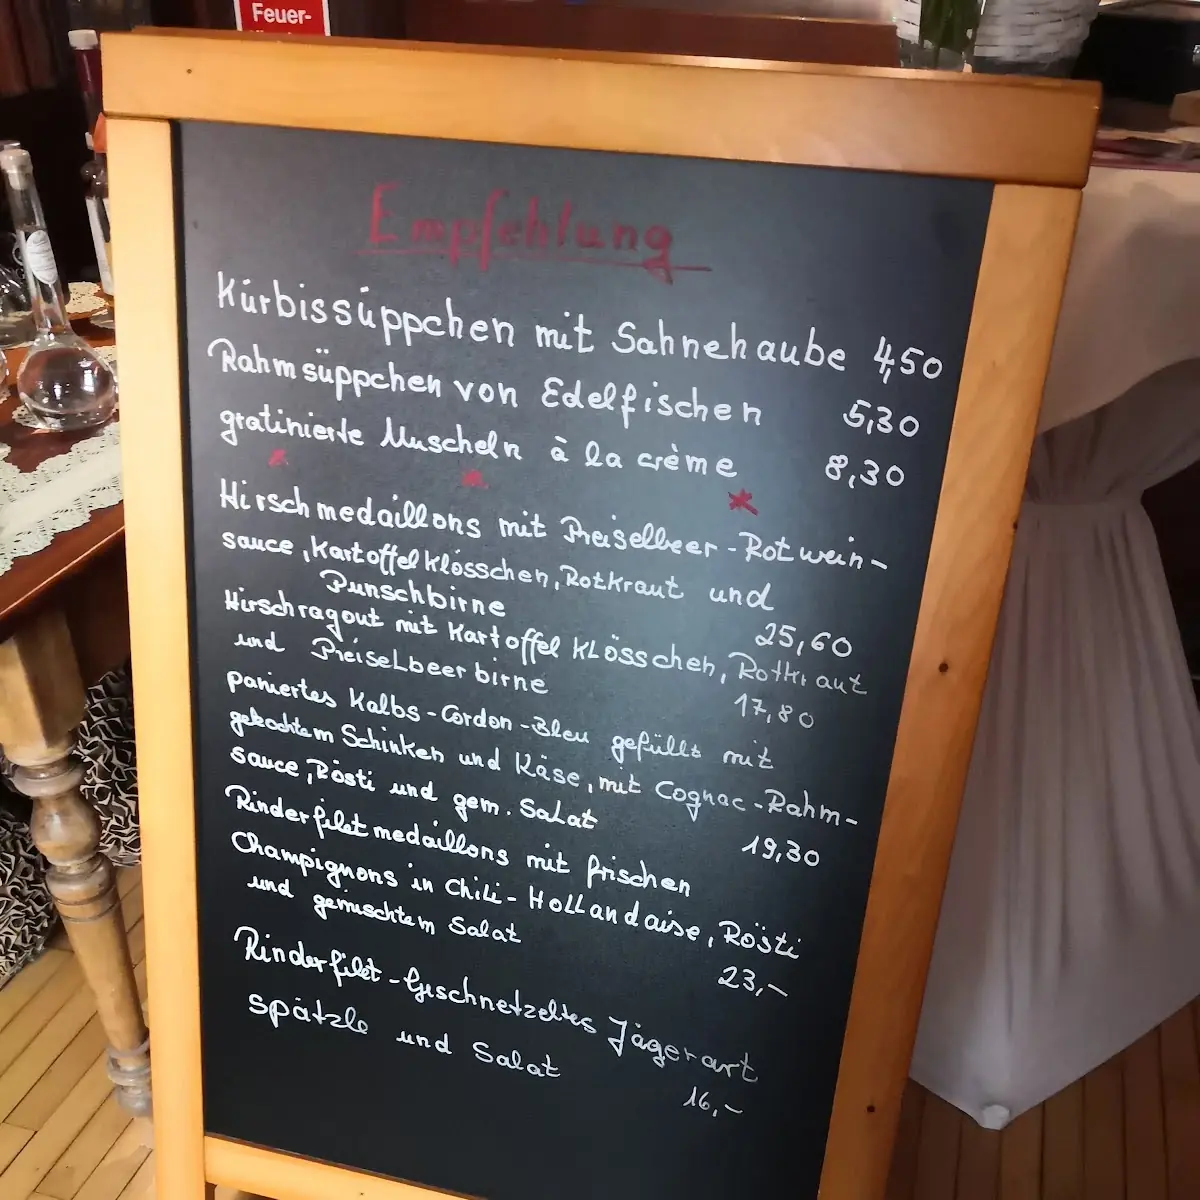 Feuer-
Empfehlung
Kürbissüppchen mit Sahnehaube 4,50
Rahmsüppchen von Edelfischen 5,30
gratinierte Muscheln à la crème 8,30
Hirschmedaillons mit Preiselbeer-Rotwein-
sauce, Kartoffelklösschen, Rotkraut und
Punschbirne 25,60
Hirschragout mit Kartoffelklösschen, Rotkraut
und Preiselbeerbirne 17,80
paniertes Kalbs-Cordon-Bleu gefüllt mit
gekochtem Schinken und Käse, mit Cognac-Rahm-
sauce, Rösti und gem. Salat 19,30
Rinderfiletmedaillons mit frischen
Champignons in Chili-Hollandaise, Rösti
und gemischtem Salat 23,-
Rinderfilet-Geschnetzeltes Jägerart
Spätzle und Salat 16,-